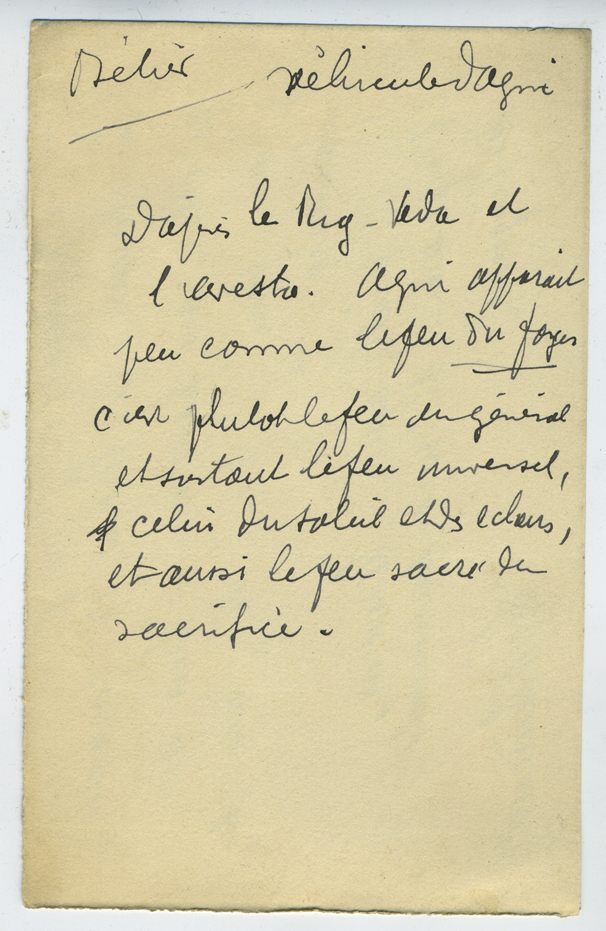 Bélier véhicule d'Agni
D'après le Rig-Veda et
l'avesta. Agni apparait
peu comme le feu du foyer
c'est plutot le feu en général
et surtout le feu universel,
celui du soleil et des eclairs,
et aussi le feu sacré du
sacrifice.